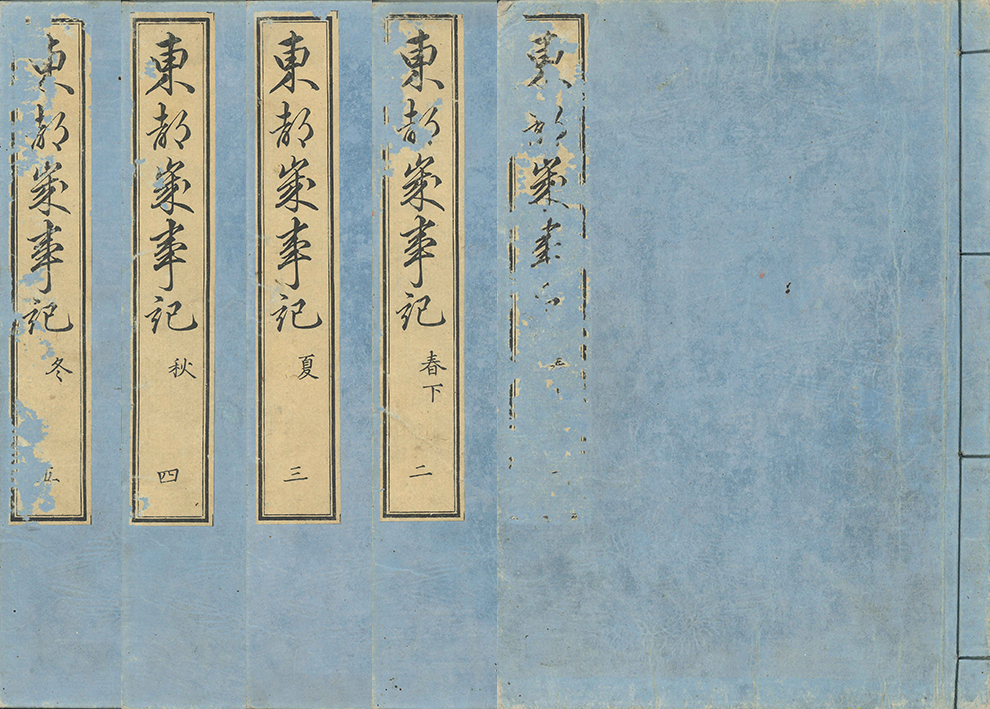 東都歳事
東都歳事記 春下 二
東都歳事記 夏 三
東都歳事記 秋 四
東都歳事記 冬 五